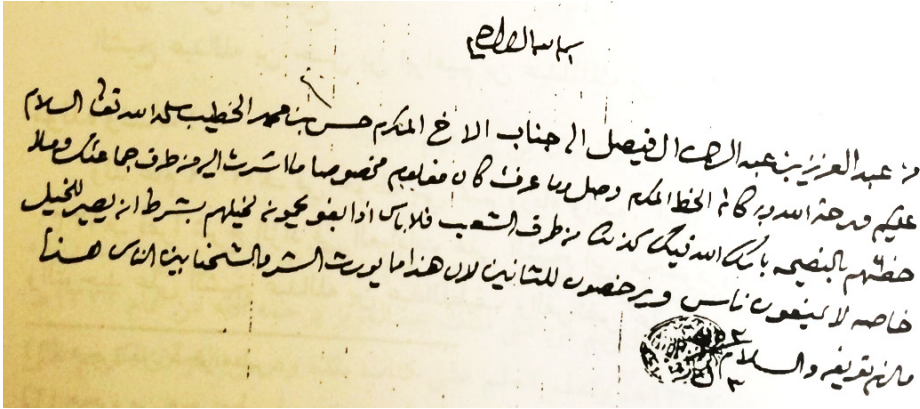 بسم الله الرحمن الرحيم
من عبد العزيز بن عبد الرحمن ال فيصل الى جناب الاخ المكرم حسن بن محمد الخطيب سلمه الله تعالى السلام
عليكم ورحمة الله وبركاته الخط المكرم وصل وما عرفت كان معلوم مخصوصا ما اشرت اليه من طرف جماعتك وملا
حظتهم بالنصيحه بارك الله فيك كذلك من طرف الشعب فلا باس اذا بغو يحمونه لخيلهم بشرط انه يصير للخيل
خاصه لا يمنعون ناس ويرخصون للثانين لان هذا ما يورث الشر والشحنا بين الناس هذا
ما لزم تعريفه والسلام